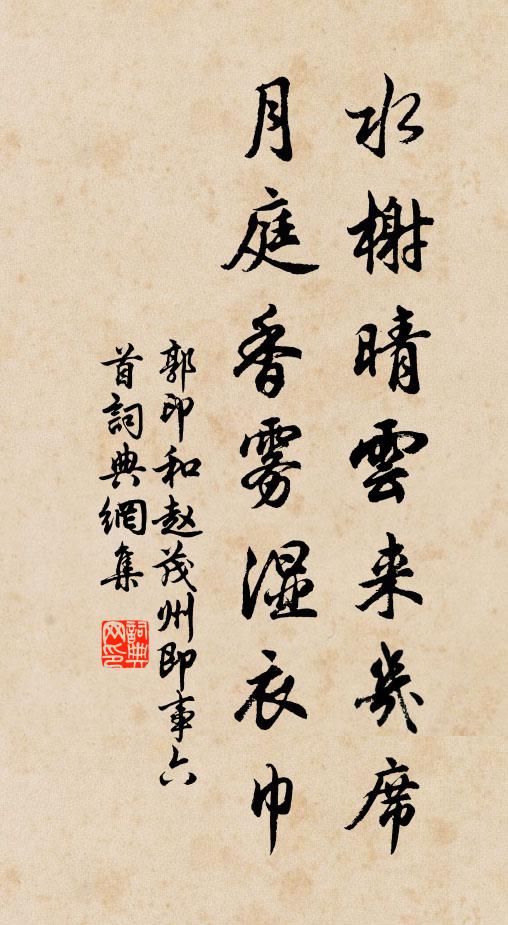 水榭晴雲来幾席
月庭香雾湿衣巾
郭印和赵茂州即事六
首詞典網集
詞典网印